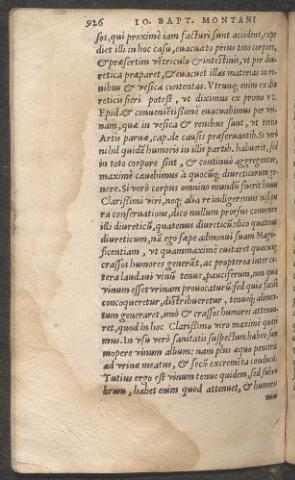 926 IO. BAPT. MONTANI
sos, qui proximè iam facturi sunt accidens, expe
diet illi in hoc casu, euacuato prius toto corpore,
& præsertim vetriculo & intestinis, vt per diu-
retica præparet, & euacuet illas materias in re-
nibus & vesica contentas. Vtrunq; enim ex diu
reticis fieri potest, vt diximus ex primo
Epid. & conuenietissimè euacuabimus per vri-
nam, quæ in vesica & renibus sunt, vt tertio
Artis paruæ, cap. de causis præseruantib. Si verò
nihil quidē humoris in illis partib. habuerit, sed
in toto corpore sint, & continuò aggregentur,
maximè cauebimus à quocūq; diureticorum ge-
nere. Si verò corpus omnino mundū fuerit huius
Clarissimi viri, neq; alia re indigeremus nisi pu
ra conseruatione, dico nullum prorsus conuenire
illi diureticū, quatenus diureticū: dico quatenus
diureticum, nā ego sape admonui suam Mag-
ficentiam, vt quammaximè euitaret quæcūq;
crassos humores generāt, ac propterea inter cæ
tera laudaui vinū tenue, pauciferum, non quia
vinum esset vrinam prouocaturū: sed quia facilè
concoqueretur, distribueretur, tenueq; alimen-
tum generaret, imò & crassos humores attenua-
ret, quod in hoc Clarissimo viro maximè quæri
mus. In vsu verò sanitatis suspectum habeo sum
mopere vinum album: nam plus æquo penetrat
ad vrinæ meatus, & secū excremēta conducit.
Tutius ergo est vinum tenue quidem, sed subru
brum, habet enim quod attenuet, & humores